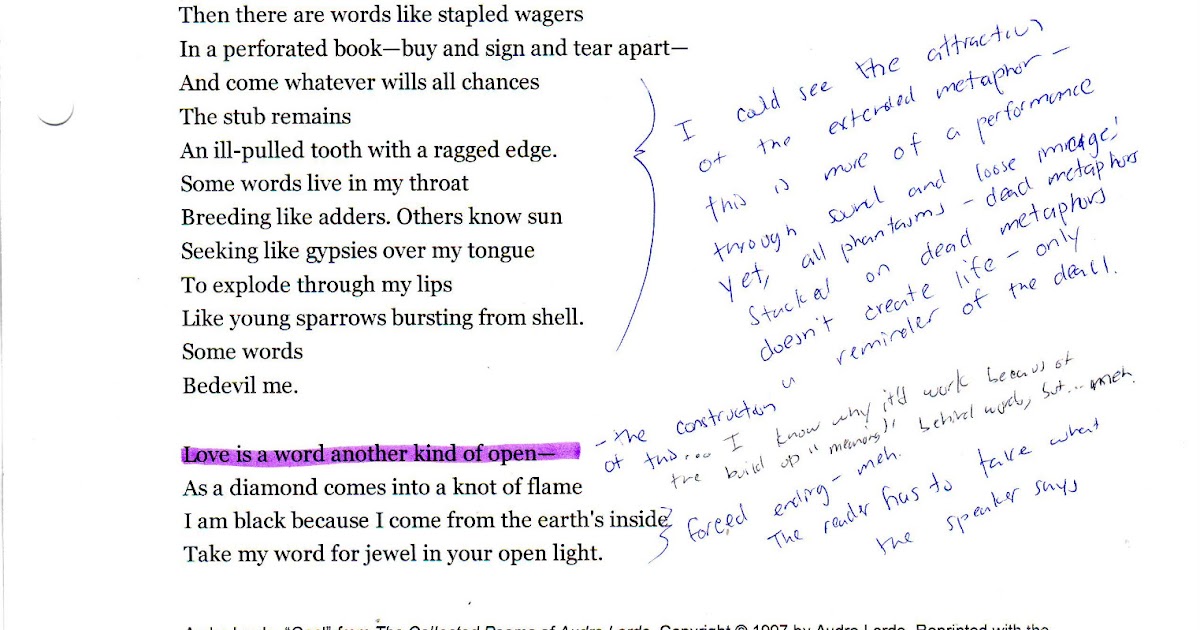 Then there are words like stapled wagers
In a perforated book—buy and sign and tear apart—
And come whatever wills all chances
The stub remains
An ill-pulled tooth with a ragged edge.
Some words live in my throat
Breeding like adders. Others know sun
Seeking like gypsies over my tongue
To explode through my lips
Like young sparrows bursting from shell.
Some words
Bedevil me.
Love is a word another kind of open—
As a diamond comes into a knot of flame
I am black because I come from the earth's inside
Take my word for jewel in your open light.
I could see the attraction
of the extended metaphor –
this is more of a performance
through sound and loose image!
Yet, all phantasms – dead metaphors
Stacked on dead metaphors
doesn't create life – only
a reminder of the dead.
– the construction
of this... I know why it'd work because of
the build up "meaning" behind words, but... meh.
forced ending – meh.
The reader has to take what
the speaker says
from The Collected Poems of Audre Lorde. Copyright © 1997 by Audre Lorde. Reprinted with the